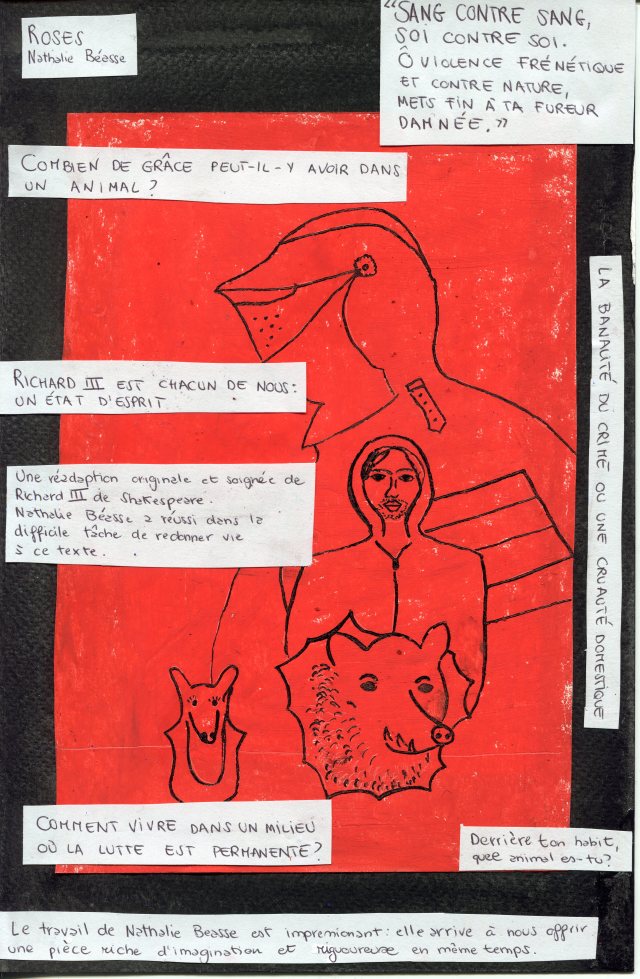 ROSES
Nathalie Béasse
“SANG CONTRE SANG,
SOI CONTRE SOI.
Ô VIOLENCE FRÉNÉTIQUE
ET CONTRE NATURE,
METS FIN À TA FUREUR
DAMNÉE.”
COMBIEN DE GRÂCE PEUT-IL-Y AVOIR DANS
UN ANIMAL?
LA BANALITÉ DU CRIME OU UNE CRUAUTÉ DOMESTIQUE
RICHARD III EST CHACUN DE NOUS:
UN ÉTAT D'ESPRIT
Une réadaption originale et soignée de
Richard III de Shakespeare.
Nathalie Béasse a réussi dans la
difficile tâche de redonner vie
à ce texte.
COMMENT VIVRE DANS UN MILIEU
OÙ LA LUTTE EST PERMANENTE?
Derrière ton habit,
quel animal es-tu?
Le travail de Nathalie Beasse est impremionant: elle arrive à nous offrir
une pièce riche d'imagination et riguoureuse en même temps.